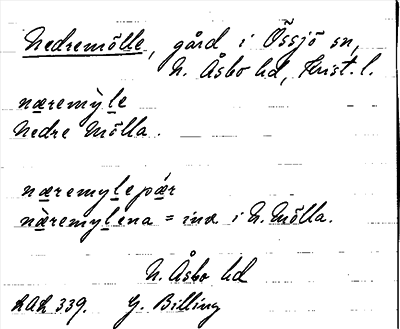 Nedremölle, gård i Össjö sn,
N. Åsbo hd, Krist. l.
næremỳle
Nedre Mölla.
næremylepár
næ̀remylena = inv i N. Mölla.
N. Åsbo hd
LAL 339. G. Billing